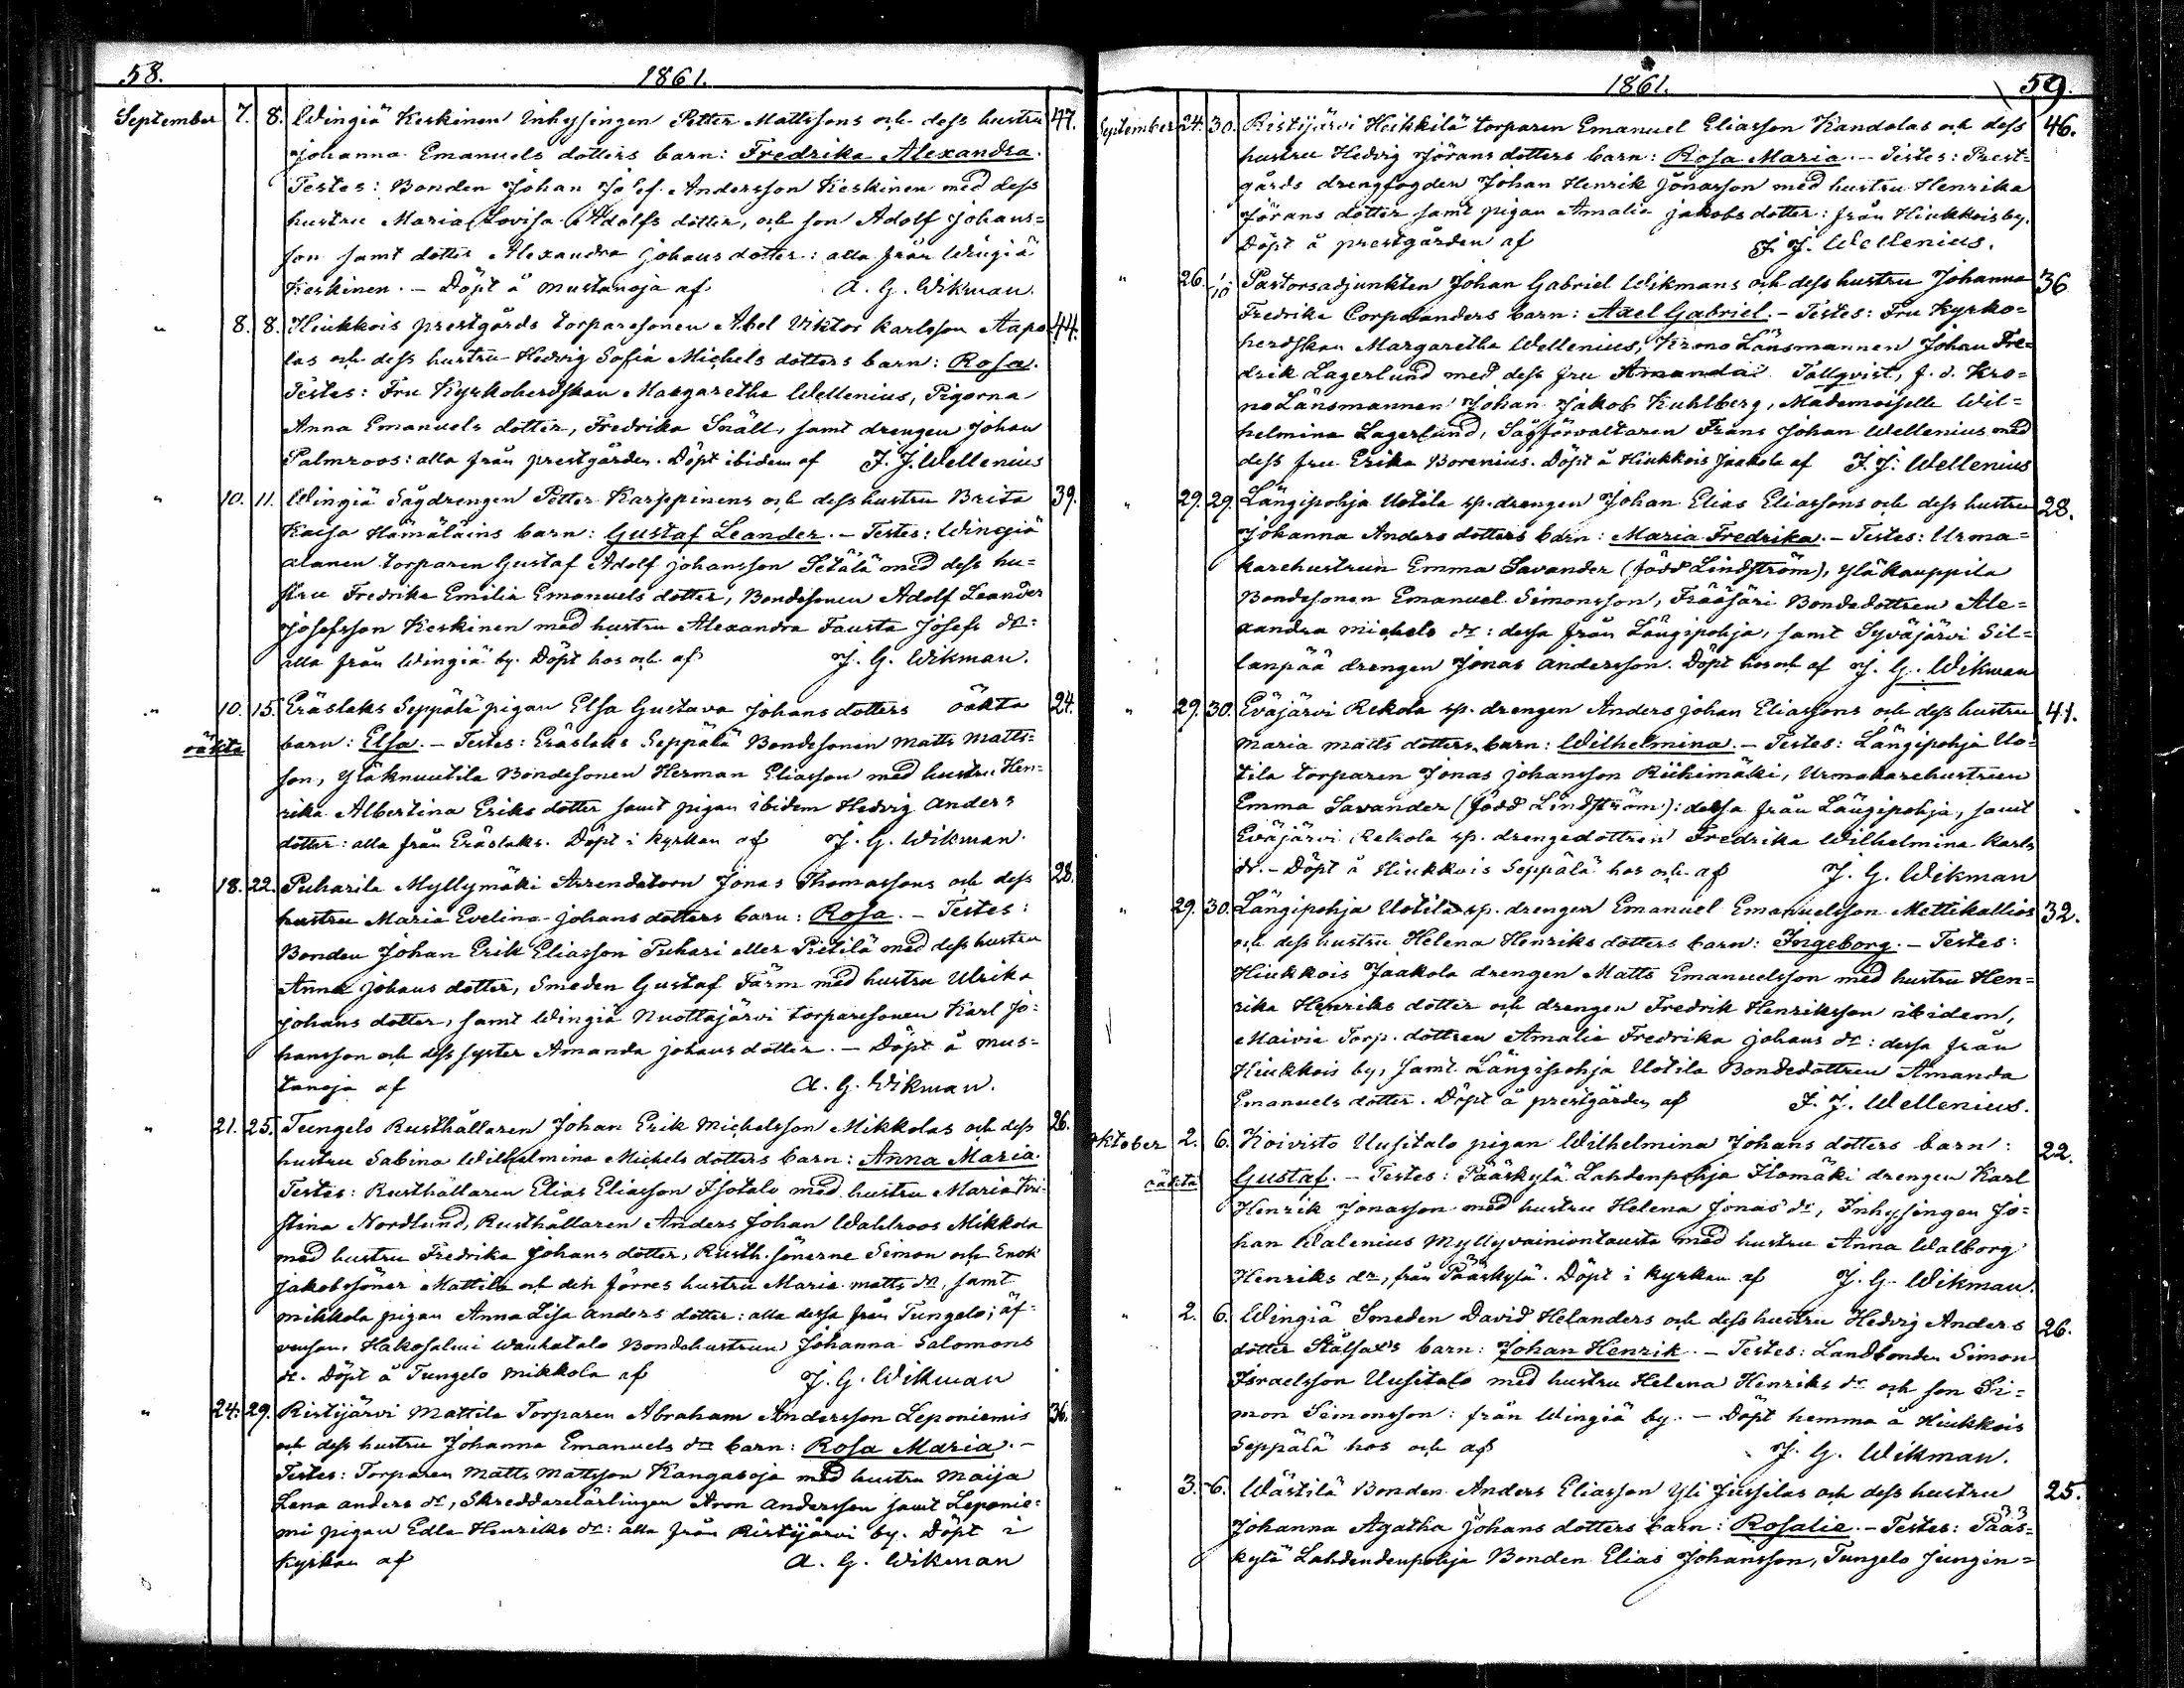 58. 1861.
September 7. 8. Wingiä Keskinen Inhysingen Petter Mattssons och dess hustru 47.
Johanna Emanuels dotters barn: Fredrika Alexandra.
Testes: Bonden Johan Josef Andersson Keskinen med dess
hustru Maria Lovisa Adolfs dotter, och son Adolf Johans=
son samt dotter Alexandra Johans dotter: alla från Wingiä
Keskinen. – Döpt å Mustanoja af A. G. Wikman.
" 8. 8. Hiukkois prestgårds torparesonen Abel Viktor Karlsson Aapo 44.
las och dess hustru Hedvig Sofia Michels dotters barn: Rosa.
Testes: Fru Kyrkoherdskan Margaretha Wellenius, Pigorna
Anna Emanuels dotter, Fredrika Snäll, samt drengen Johan
Palmroos: alla från prestgården. Döpt ibidem af J. J. Wellenius
" 10. 11. Wingiä Sågdrengen Petter Karppinens och dess hustru Brita 39.
Kaisa Hämäläins barn: Gustaf Leander. – Testes: Wingiä
alanen torparen Gustaf Adolf Johansson Setälä med dess hu=
stru Fredrika Emilia Emanuels dotter, Bondesonen Adolf Leander
Josefsson Keskinen med hustru Alexandra Fausta Josefs dr:
alla från Wingiä by. Döpt hos och af J. G. Wikman.
" 10. 15. Eräslaks Seppälä pigan Elsa Gustava Johans dotters oäkta 24.
oäkta barn: Elsa. – Testes: Eräslaks Seppälä Bondesonen Matts Matts=
son, Yläknuutila Bondesonen Herman Eliasson med hustru Hen=
rika Albertina Eriks dotter samt pigan ibidem Hedvig Anders
dotter: alla från Eräslaks. Döpt i kyrkan af J. G. Wikman.
" 18. 22. Puharila Myllymäki Arrendatorn Jonas Thomassons och dess 28.
hustru Maria Evelina Johans dotters barn: Rosa. – Testes:
Bonden Johan Erik Eliasson Puhari eller Pietilä med dess hustru
Anna Johans dotter, Smeden Gustaf Färm med hustru Ulrika
Johans dotter, samt Wingiä Nuottajärvi torparesonen Karl Jo=
hansson och dess syster Amanda Johans dotter. – Döpt å Mus=
tanoja af A. G. Wikman.
" 21. 25. Tungelo Rusthållaren Johan Erik Michelsson Mikkolas och dess 26.
hustru Sabina Wilhelmina Michels dotters barn: Anna Maria.
Testes: Rusthållaren Elias Eliasson Isotalo med hustru Maria Kri=
stina Nordlund, Rusthållaren Anders Johan Wahlroos Mikkola
med hustru Fredrika Johans dotter, Rusth. sönerne Simon och Enok
Jakobssöner Mattila och den förres hustru Maria Matts dr, samt
Mikkola pigan Anna Lisa Anders dotter: alla dessa från Tungelo; äf=
vensom Hakosalmi Bondehustrun Johanna Salomons
dr. Döpt å Tungelo Mikkola af J. G. Wikman
" 24. 29. Ristijärvi Mattila Torparen Abraham Andersson Leponiemis 36.
och dess hustru Johanna Emanuels dr barn: Rosa Maria. –
Testes: Torparen Matts Mattsson Kangasoja med hustru Maija
Lena Anders dr, Skreddarelärlingen Aron Andersson samt Leponie=
mi pigan Edla Henriks dr: alla från Ristijärvi by. Döpt i
kyrkan af A. G. Wikman
1861. 59.
September 24. 30. Ristijärvi Heikkilä torparen Emanuel Eliasson Kandolas och dess 46.
hustru Hedvig Jörans dotters barn: Rosa Maria. – Testes: Prest=
gårds drengfogden Johan Henrik Jonasson med hustru Henrika
Jörans dotter samt pigan Amalia Jakobs dotter: från Hiukkois by.
Döpt å prestgården af J. J. Wellenius.
" 26. 1/10 Pastorsadjunkten Johan Gabriel Wikmans och dess hustru Johanna 36
Fredrika Corpolanders barn: Axel Gabriel. – Testes: Fru Kyrko=
herdskan Margaretha Wellenius, Krono Länsmannen Johan Fre=
drik Lagerlund med dess fru Amanda Tallqvist, f. d. Kro=
no Länsmannen Johan Jakob Kuhlberg, Mademoiselle Wil=
helmina Lagerlund, Sågförvaltaren Frans Johan Wellenius med
dess fru Erika Borenius. Döpt å Hiukkois Jaakola af J. J. Wellenius
" 29. 29. Längipohja Uotila sp. drengen Johan Elias Eliassons och dess hustru 28.
Johanna Anders dotters barn: Maria Fredrika. – Testes: Urma=
karehustrun Emma Savander (född Lindström), Yläkauppila
Bondesonen Emanuel Simonsson, Bondedottren Ale=
xandra Michels dr: dessa från Längipohja, samt Syväjärvi Sil=
lanpää drengen Jonas Andersson. Döpt hos och af J. G. Wikman
" 29. 30. Eväjärvi Rekola sp. drengen Anders Johan Eliassons och dess hustru 41.
Maria Matts dotters barn: Wilhelmina. – Testes: Längipohja Uo=
tila torparen Jonas Johansson Riihimäki, Urmakarehustrun
Emma Savander (född Lindström): dessa från Längipohja, samt
Eväjärvi Rekola sp. drengedottren Fredrika Wilhelmina Karls
dr. – Döpt å Hiukkois Seppälä hos och af J. G. Wikman
" 29. 30. Längipohja Uotila sp. drengen Emanuel Emanuelsson Mettikallios 32.
och dess hustru Helena Henriks dotters barn: Ingeborg. – Testes:
Hiukkois Jaakola drengen Matts Emanuelsson med hustru Hen=
rika Henriks dotter och drengen Fredrik Henriksson ibidem,
Maivia Torp. dottren Amalia Fredrika Johans dr: dessa från
Hiukkois by, samt Längipohja Uotila Bondedottren Amanda
Emanuels dotter. Döpt å prestgården af J. J. Wellenius.
ktober 2. 6. Koivisto Uusitalo pigan Wilhelmina Johans dotters barn: 22.
oäkta Gustaf. – Testes: Pääskylä Lahdenpohja Ilomäki drengen Karl
Henrik Jonasson med hustru Helena Jonas dr, Inhysingen Jo=
han Walenius Myllyvainiontausta med hustru Anna Walborg
Henriks dr, från Pääskylä. Döpt i kyrkan af J. G. Wikman.
" 2. 6. Wingiä Smeden David Helanders och dess hustru Hedvig Anders 26.
dotter barn: Johan Henrik. – Testes: Landbonden Simon
Israelsson Uusitalo med hustru Helena Henriks dr och son Si=
mon Simonsson: från Wingiä by. – Döpt hemma å Hiukkois
Seppälä hos och af J. G. Wikman.
" 3. 6. Wästilä Bonden Anders Eliasson Yli Jussilas och dess hustru 25.
Johanna Agatha Johans dotters barn: Rosalie. – Testes: Pääs=
kylä Lahdendenpohja Bonden Elias Johansson, Tungelo Jungin=